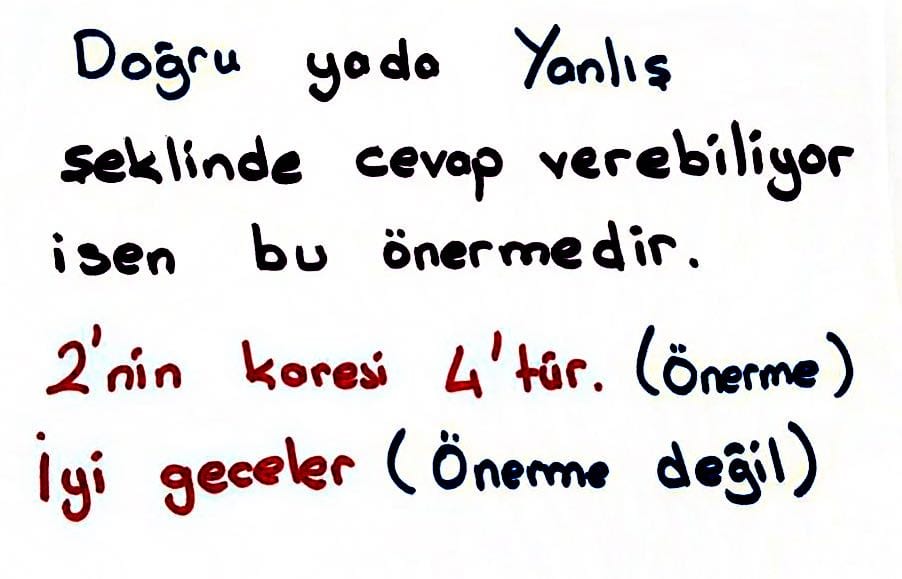 Doğru yada Yanlış
şeklinde cevap verebiliyor
isen bu önermedir.
2'nin karesi 4'tür. (Önerme)
İyi geceler (Önerme değil)